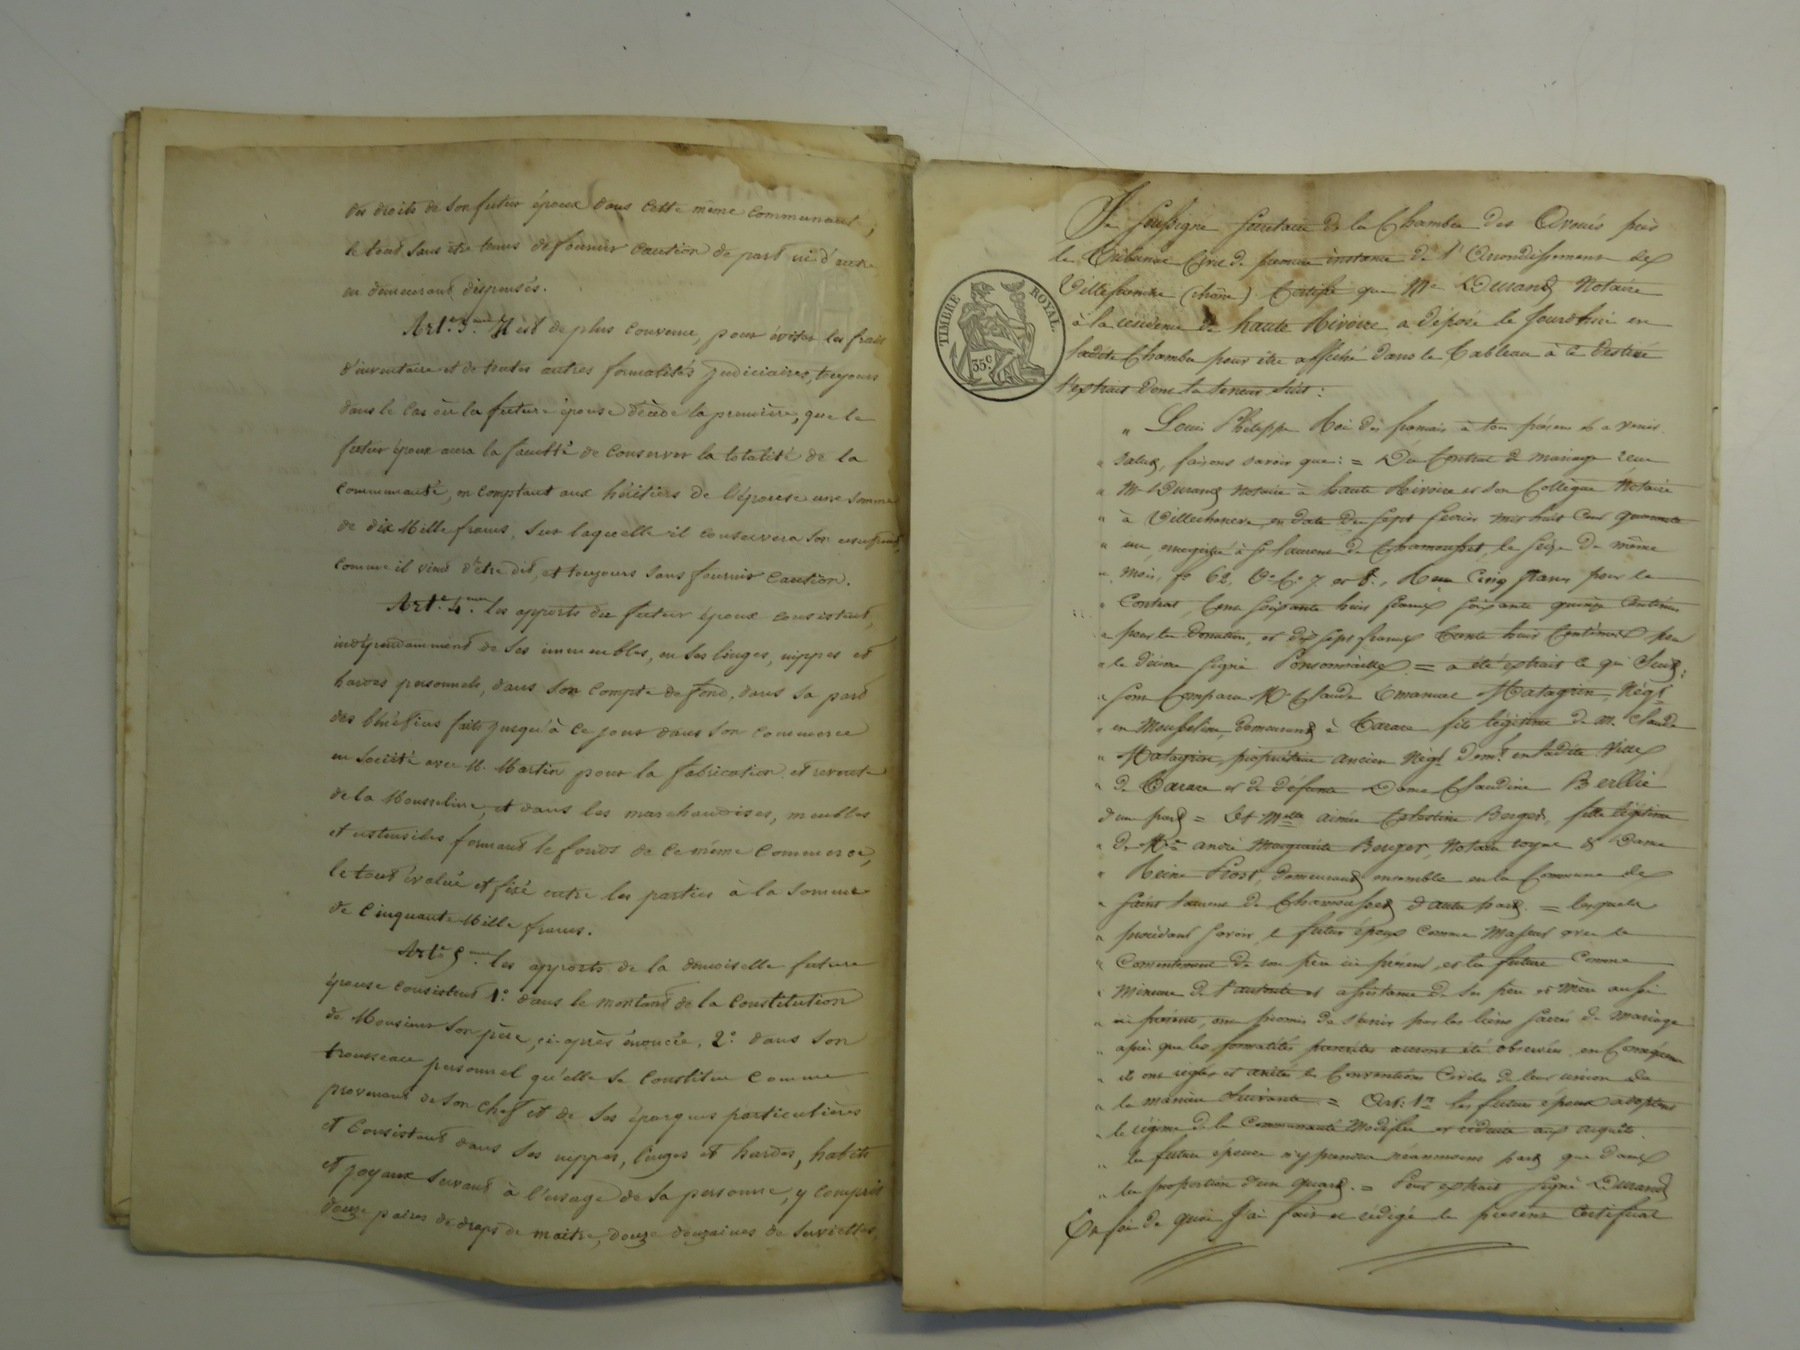 des droits de son futur époux dans cette même communauté,
le tout sans être tenus de fournir caution de part ni d'autre
en demeurant dispensés.
Art.e 3.me Il est de plus convenu, pour éviter les frais
d'inventaire et de toutes autres formalités judiciaires, toujours
dans le cas où la future épouse décède la première, que le
futur époux aura la faculté de conserver la totalité de la
communauté, en comptant aux héritiers de l'épouse une somme
de dix Mille francs, sur laquelle il conservera son usufruit,
comme il vient d'être dit, et toujours sans fournir caution.
Art.e 4.me les apports du futur époux consistent,
indépendamment de ses immeubles, en ses linges, nippes et
hardes personnels, dans son compte de fond, dans sa part
des bénéfices faits jusqu'à ce jour dans son commerce
en société avec M. Martin pour la fabrication et revente
de la Mousseline, et dans les marchandises, meubles
et ustensiles formant le fonds de ce même commerce,
le tout évalué et fixé entre les parties à la somme
de Cinquante Mille francs.
Art.e 5.me les apports de la demoiselle future
épouse consistent 1.° dans le montant de la constitution
de Monsieur son père, ci-après énoncée, 2.° dans son
trousseau personnel qu'elle se constitue comme
provenant de son chef et de ses épargnes particulières
et consistant dans ses nippes, linges et hardes, habits
et joyaux servant à l'usage de sa personne, y compris
douze paires de draps de maitre, douze douzaines de serviettes,
TIMBRE ROYAL.
35.c
Je soussigné secretaire de la Chambre des Avoués près
le Tribunal Civil de premiere instance de l'Arrondissement de
Villefranche (rhône) Certifie que Me Durand Notaire
à la résidence de haute Rivoire a déposé le jourd'hui en
ladite Chambre pour être affiché dans le Tableau à ce destiné
l'extrait dont la teneur suit :
" Louis Philippe Roi des français à tous présens et a venir
" Salut, faisons savoir que : = Du Contrat de mariage reçu
" Me Durand Notaire à haute Rivoire et son Collègue Notaire
" à Villechenève, en date du sept fevrier mil huit cent quarante
" un, enregistré à St Laurent de Chamousset, le seize du même
" mois, fo 62, Vo Ce 7 et 8., Reçu Cinq francs pour le
" Contrat, Cent soixante huit francs soixante quinze Centimes
" pour la donation, et dix sept francs trente huit Centimes pour
" le décime signé = a été extrait ce qui suit :
" Sont Comparu Mr Claude Emanuel Matagrin, Négt
" en Mousseline, demeurant à Tarare fils légitime de m. Claude
" Matagrin, propriétaire ancien Négt demt en ladite Ville
" de Tarare et de défunte Dame Claudine Berllié
d'une part = Et Melle aimée Celestine Berger, fille légitime
" de Me andré Marguerite Berger, Notaire royal & Dame
" Reine Prost, demeurant ensemble en la Commune de
" Saint Laurent de Chamousset d'autre part. = lesquels
" procédant savoir, le futur époux comme Majeur avec le
" Consentement de son père ici présent, et la future comme
" Mineure de l'autorité et assistance de ses père et mère aussi
" ici présents, ont promis de s'unir par les liens sacrés du mariage
" après que les formalités prescrites auront été observées en Conséquence
" ils ont reglé et arrêté les Conventions Civiles de leur union de
" la manière suivante. = Art: 1er les futurs époux adoptent
" le régime de la Communauté Modifiée et réduite aux acquêts.
" la future épouse n'y prendra néanmoins part que dans
" la proportion d'un quart. = Pour extrait signé Durand
En foi de quoi j'ai fait et rédigé le présent Certificat